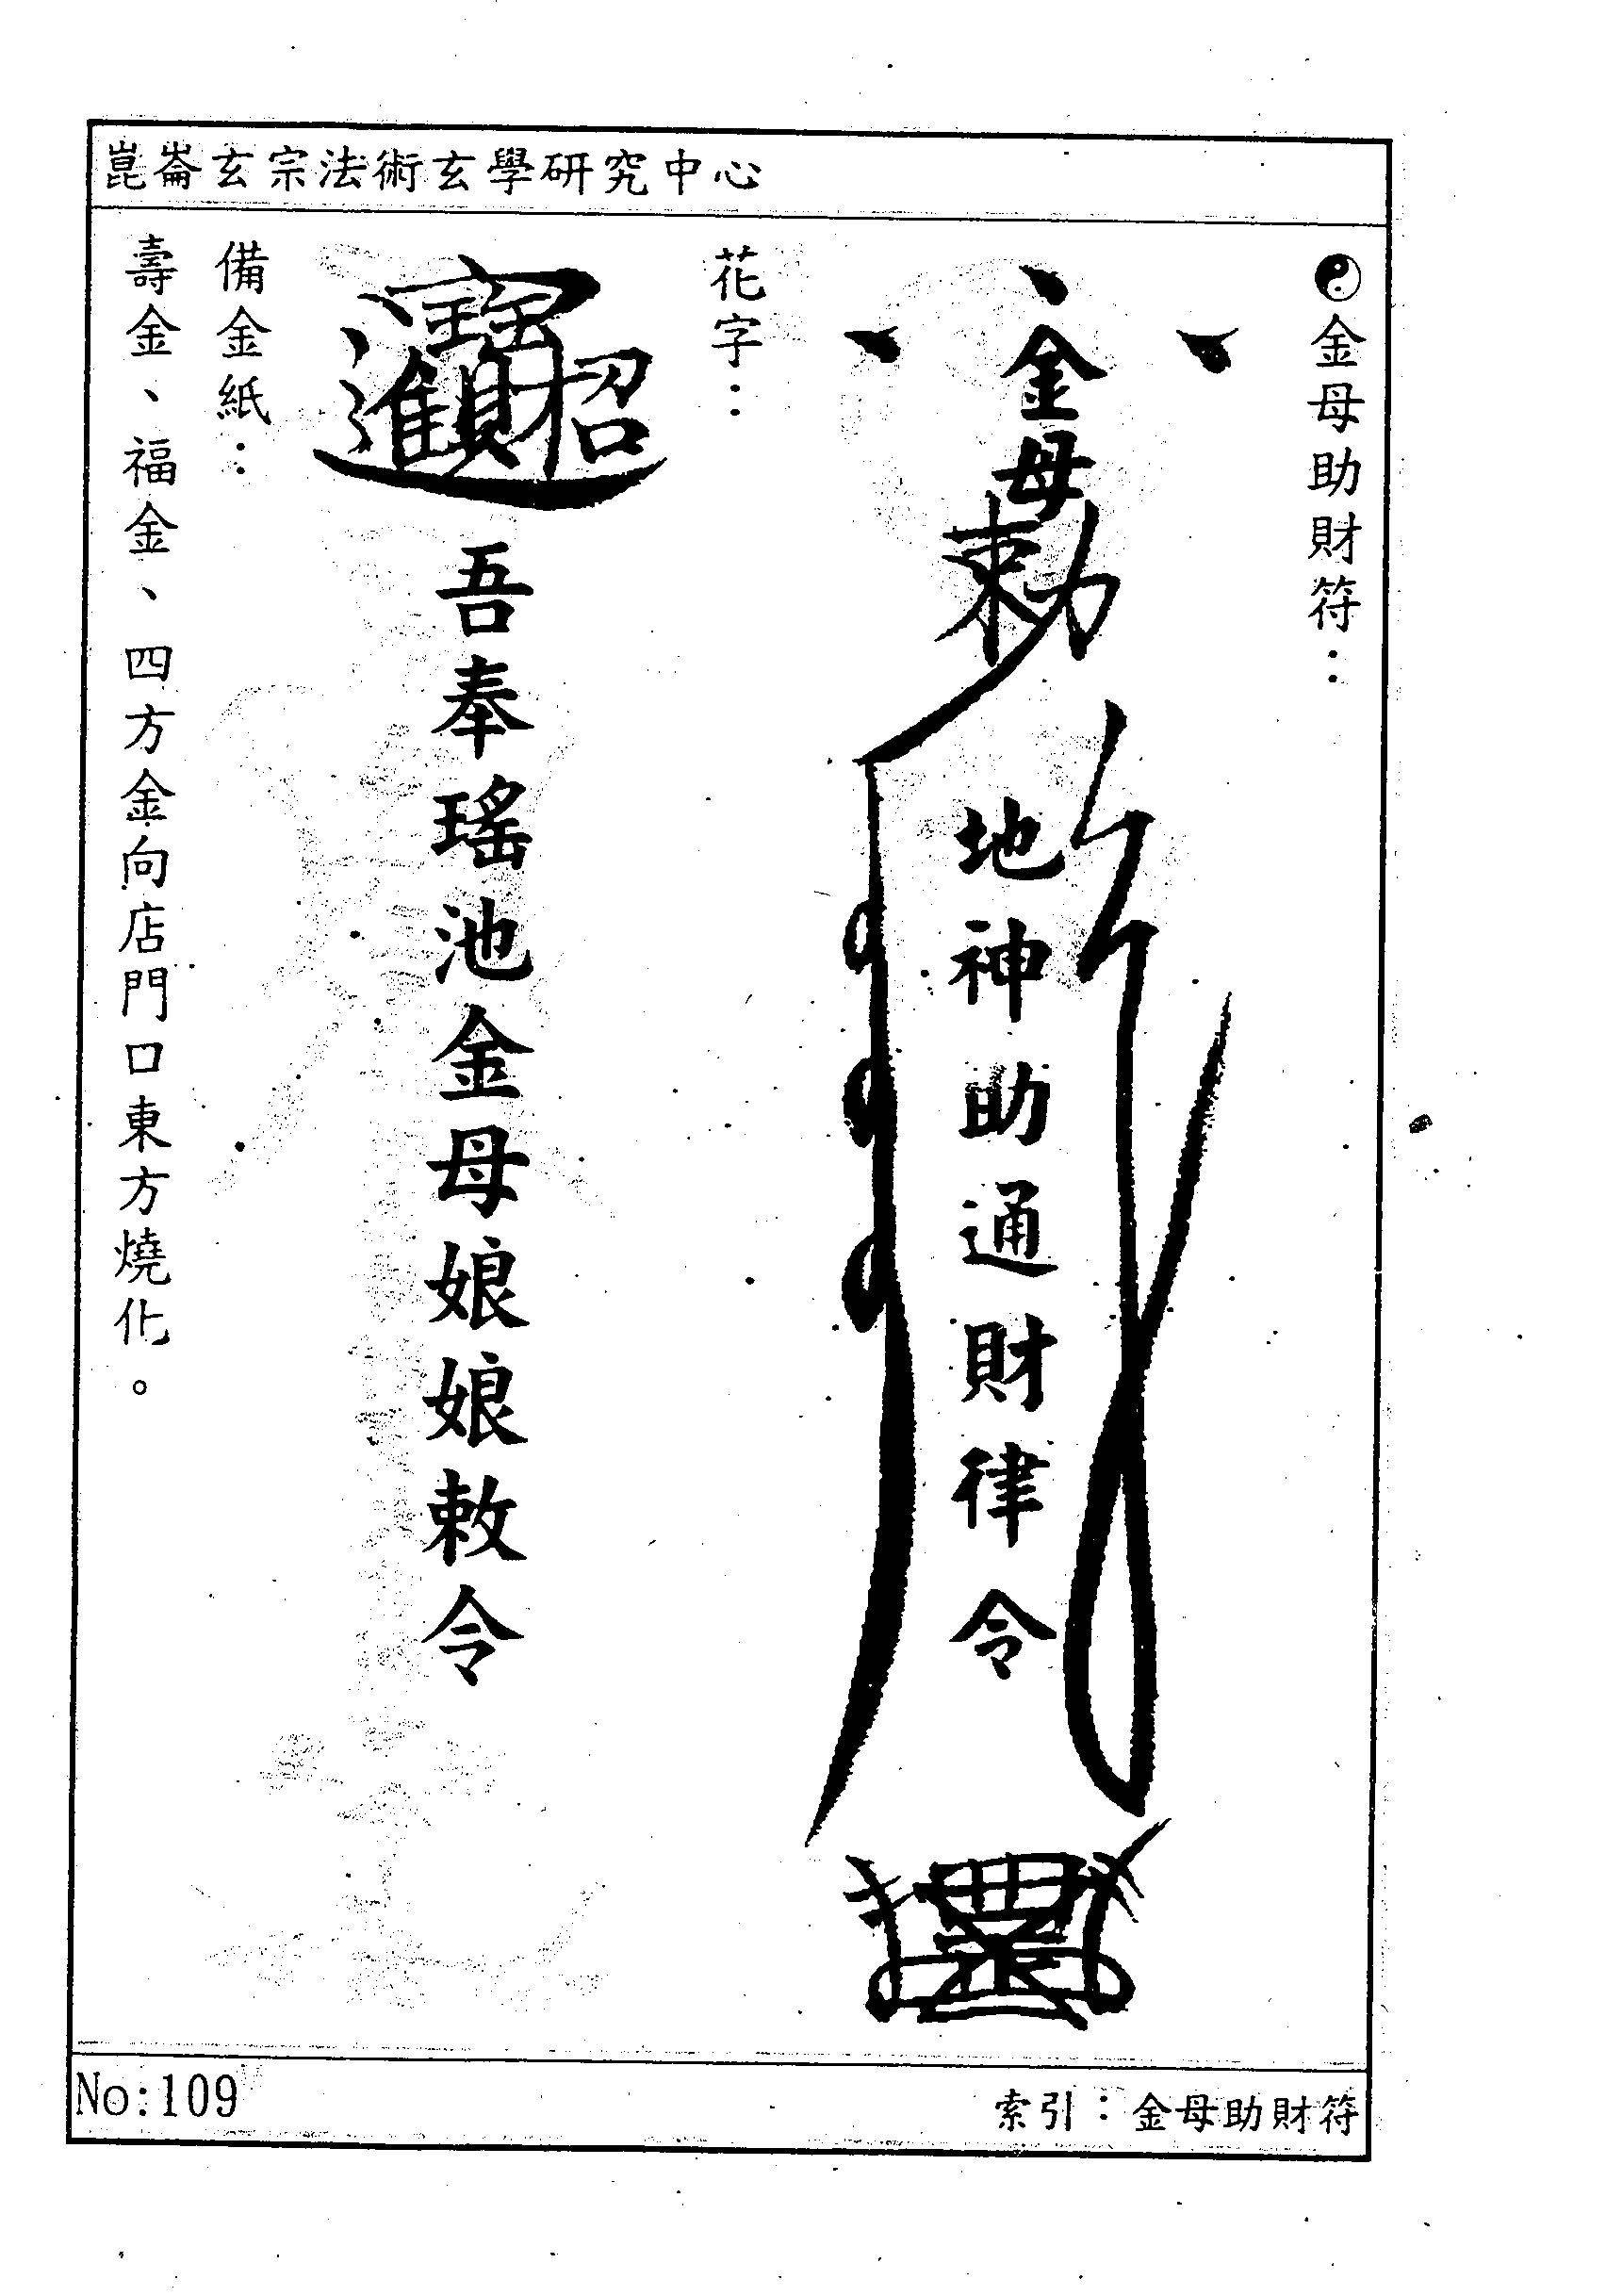 崑崙玄宗法術玄學研究中心
金母助財符：
金母勅
地神助通財律令
花字：
招財進寶
吾奉瑤池金母娘娘敕令
備金紙：
壽金、福金、四方金向店門口東方燒化。
No:109
索引：金母助財符